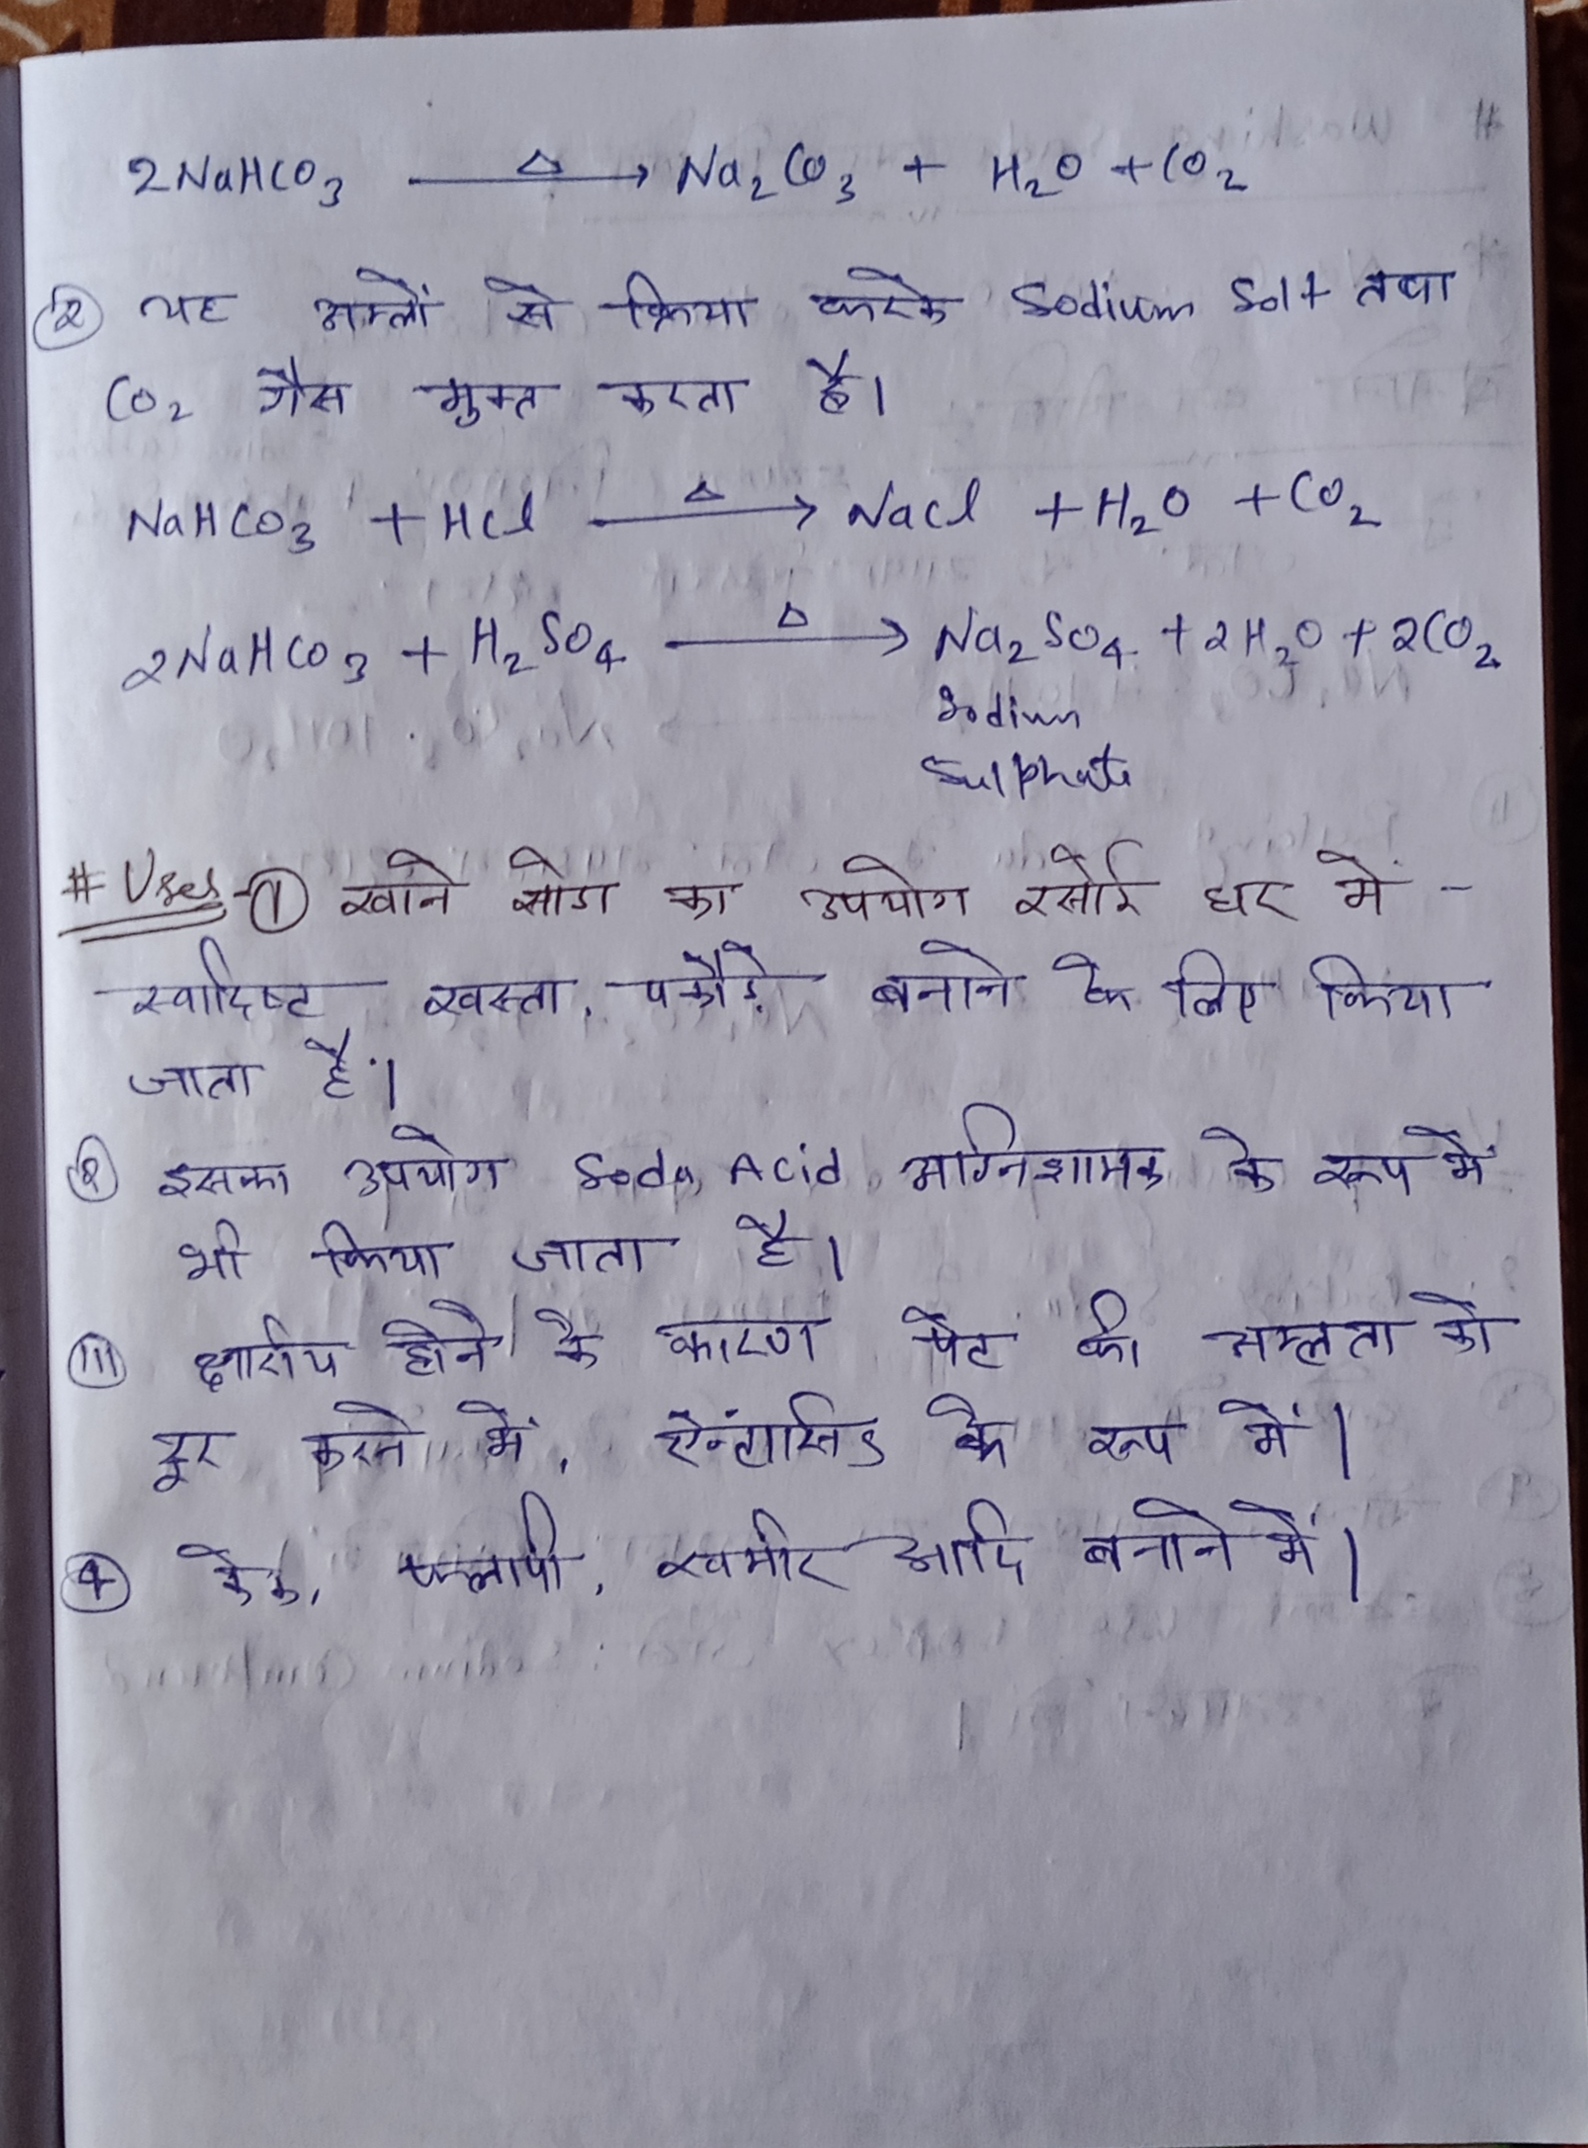 2NaHCO₃ —Δ→ Na₂CO₃ + H₂O + CO₂
② यह अम्लों से क्रिया करके Sodium Salt तथा
CO₂ गैस मुक्त करता है।
NaHCO₃ + HCl —Δ→ NaCl + H₂O + CO₂
2NaHCO₃ + H₂SO₄ —Δ→ Na₂SO₄ + 2H₂O + 2CO₂
Sodium
Sulphate
# Uses - ① खाने सोडा का उपयोग रसोई घर में -
स्वादिष्ट खस्ता, पकौड़े बनाने के लिए किया
जाता है।
② इसका उपयोग Soda Acid अग्निशामक के रूप में
भी किया जाता है।
(III) क्षारीय होने के कारण पेट की अम्लता को
दूर करने में, ऐन्टासिड के रूप में।
④ केक, खमीर आदि बनाने में।